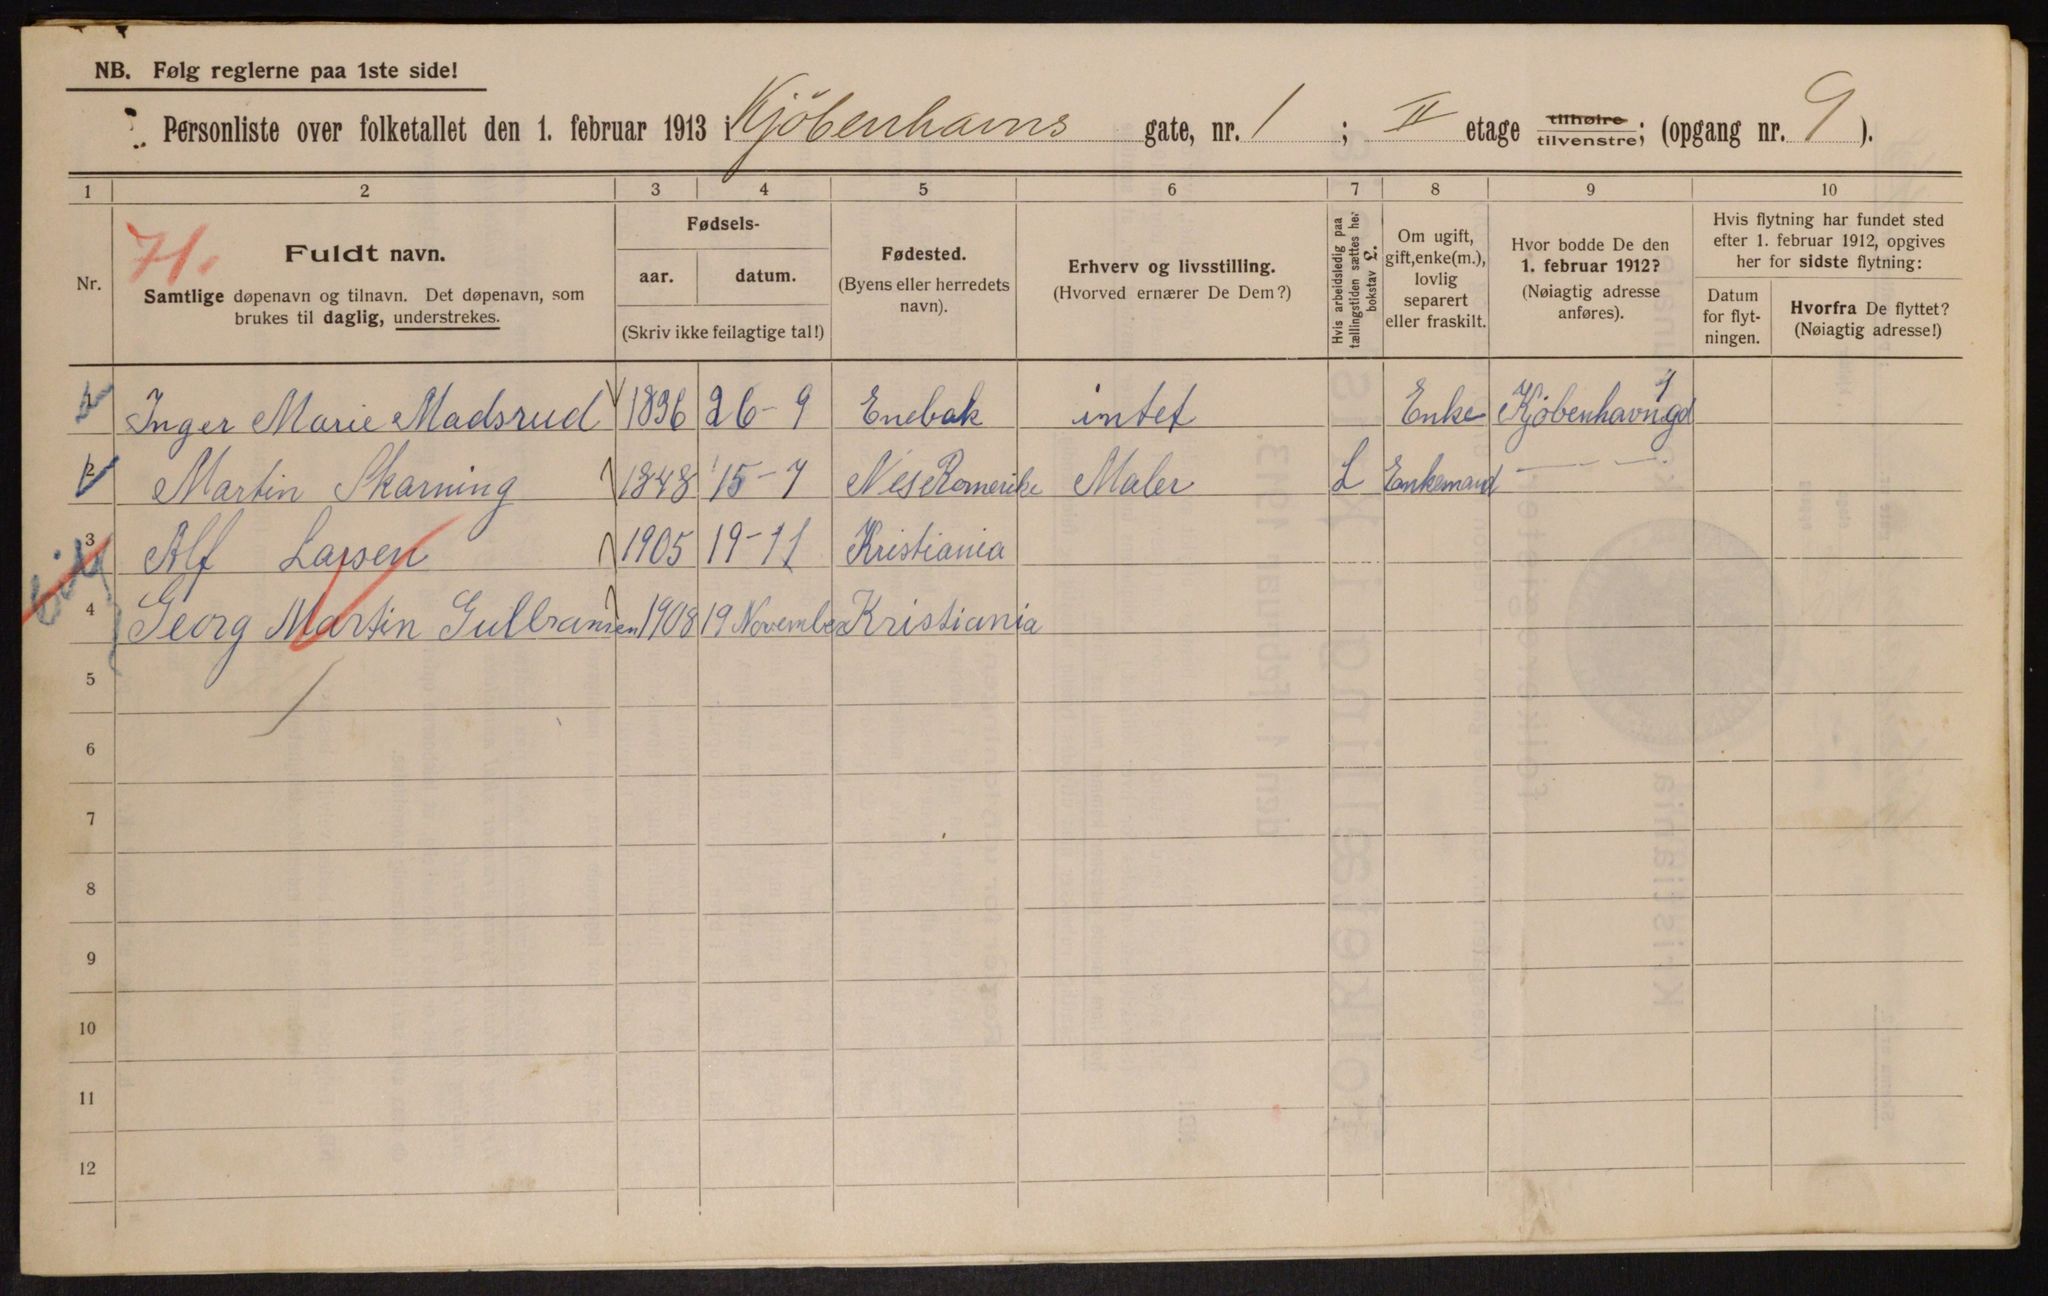 NB. Følg reglerne paa 1ste side!
Personliste over folketallet den 1. februar 1913 i Kjöbenhavns gate, nr. 1 ; II etage tilhøire tilvenstre; (opgang nr. 9 ).
1 2 3 4 5 6 7 8 9 10
Nr.
71.
Fuldt navn.
Samtlige døpenavn og tilnavn. Det døpenavn, som
brukes til daglig, understrekes.
Fødsels-
aar. datum.
(Skriv ikke feilagtige tal!)
Fødested.
(Byens eller herredets
navn).
Erhverv og livsstilling.
(Hvorved ernærer De Dem?)
Hvis arbeidsledig paa
tællingstiden sættes her
bokstav L.
Om ugift,
gift, enke(m.),
lovlig
separert
eller fraskilt.
Hvor bodde De den
1. februar 1912?
(Nøiagtig adresse
anføres).
Hvis flytning har fundet sted
efter 1. februar 1912, opgives
her for sidste flytning:
Datum
for flyt-
ningen.
Hvorfra De flyttet?
(Nøiagtig adresse!)
1 Inger Marie Madsrud 1836 26-9 Enebak intet Enke Kjöbenhavngd 1
2 Martin Skarning 1848 15-7 Nes Romerike Maler L Enkemand — — —
3 Alf Larsen 1905 19-11 Kristiania
4 Georg Martin Gulbransen 1908 19 November Kristiania
5
6
7
8
9
10
11
12